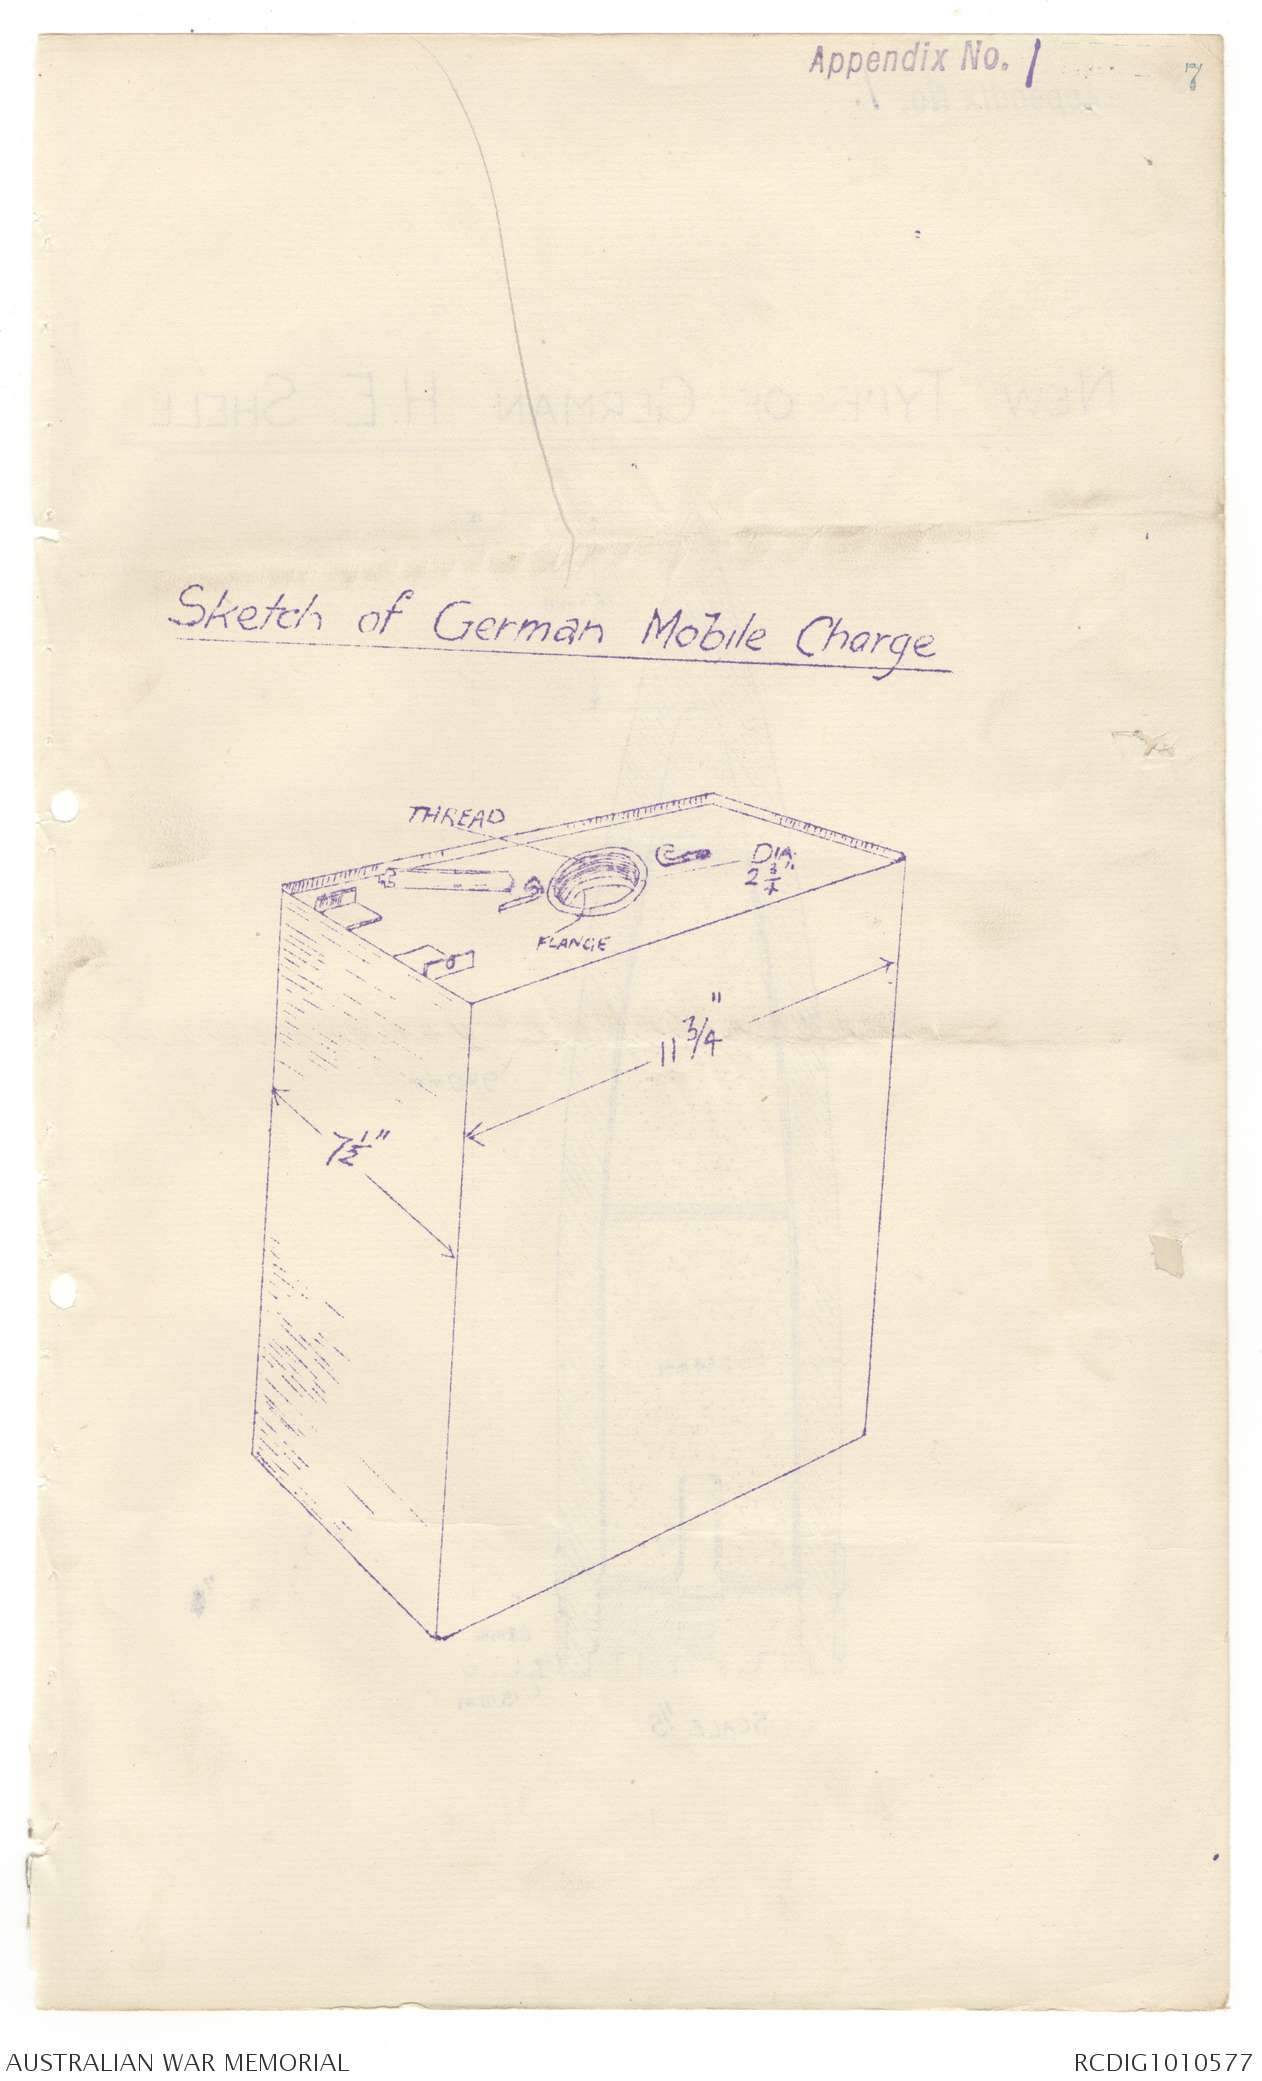 Appendix No. 1
7
Sketch of German Mobile Charge
THREAD
DIA:
2 3/4"
FLANGE
11 3/4"
7 1/2"
AUSTRALIAN WAR MEMORIAL
RCDIG1010577